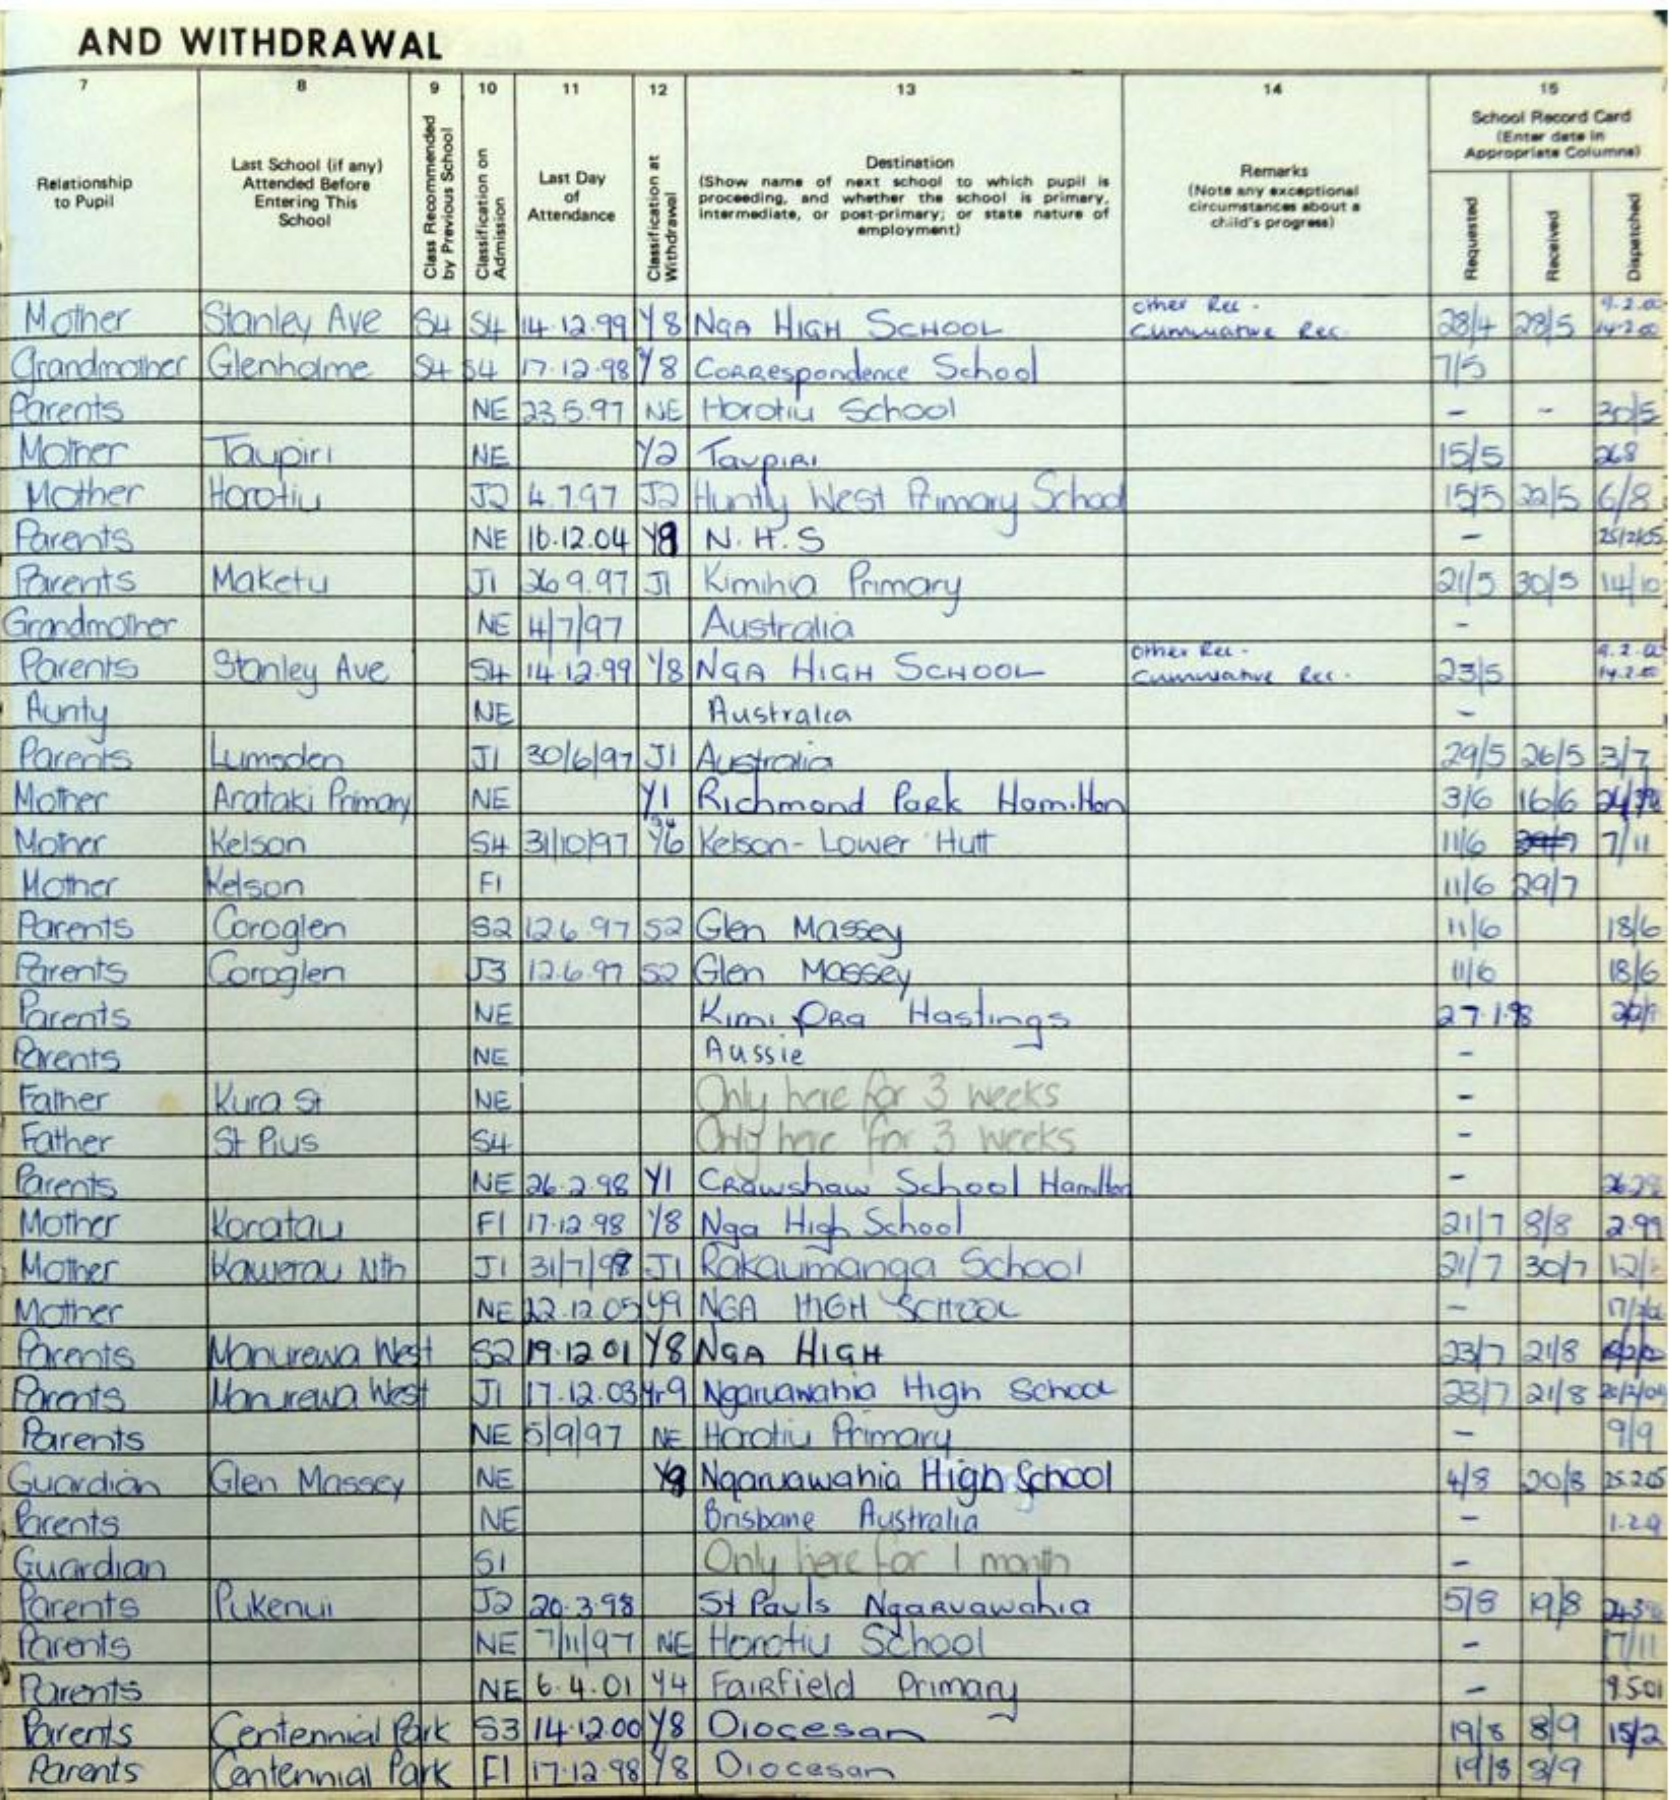 AND WITHDRAWAL
7 8 9 10 11 12 13 14 15
Relationship to Pupil
Last School (if any) Attended Before Entering This School
Class Recommended by Previous School
Classification on Admission
Last Day of Attendance
Classification at Withdrawal
Destination
(Show name of next school to which pupil is proceeding, and whether the school is primary, intermediate, or post-primary; or state nature of employment)
Remarks
(Note any exceptional circumstances about a child's progress)
School Record Card
(Enter date in Appropriate Columns)
Requested Received Dispatched
Mother Stanley Ave S4 S4 14.12.99 Y8 NGA HIGH SCHOOL other Rec. Cummuative Rec. 28/4 28/5 9.2.00 14.2.00
Grandmother Glenholme S4 S4 17.12.98 Y8 Correspondence School 7/5
Parents NE 23.5.97 NE Horotiu School - - 30/5
Mother Taupiri NE Y2 Taupiri 15/5 26.8
Mother Horotiu J2 4.7.97 J2 Huntly West Primary School 15/5 22/5 6/8
Parents NE 16.12.04 N.H.S - 25/2/05
Parents Maketu J1 26.9.97 J1 Kimihia Primary 21/5 30/5 14/10
Grandmother NE 4/7/97 Australia -
Parents Stanley Ave S4 14.12.99 Y8 NGA HIGH SCHOOL other Rec. Cummuative Rec. 23/5 9.2.00 14.2.00
Aunty NE Australia -
Parents Lumsden J1 30/6/97 J1 Australia 29/5 26/5 3/7
Mother Arataki Primary NE Y1 Richmond Park Hamilton 3/6 16/6
Mother Kelson S4 31/10/97 Y6 Kelson - Lower Hutt 11/6 7/11
Mother Kelson F1 11/6 29/7
Parents Coroglen S2 12.6.97 S2 Glen Massey 11/6 18/6
Parents Coroglen J3 12.6.97 S2 Glen Massey 11/6 18/6
Parents NE Kimi Ora Hastings 27.1.98
Parents NE Aussie -
Father Kura St NE Only here for 3 weeks -
Father St Pius S4 Only here for 3 weeks -
Parents NE 26.2.98 Y1 Crawshaw School Hamilton -
Mother Koratau F1 17.12.98 Y8 Nga High School 21/7 8/8 2.99
Mother Kawerau Nth J1 31/7/98 J1 Rakaumanga School 21/7 30/7
Mother NE 22.12.05 Y9 NGA HIGH SCHOOL -
Parents Manurewa West S2 19.12.01 Y8 NGA HIGH 23/7 21/8
Parents Manurewa West J1 17.12.03 Yr9 Ngaruawahia High School 23/7 21/8
Parents NE 5/9/97 NE Horotiu Primary - 9/9
Guardian Glen Massey NE Ngaruawahia High School 4/8 20/8 25.2.05
Parents NE Brisbane Australia -
Guardian S1 Only here for 1 month -
Parents Pukenui J2 20.3.98 St Pauls Ngaruawahia 5/8 19/8
Parents NE 7/11/97 NE Horotiu School - 17/11
Parents NE 6.4.01 Y4 Fairfield Primary - 9.5.01
Parents Centennial Park S3 14.12.00 Y8 Diocesan 19/8 8/9 15/2
Parents Centennial Park F1 17.12.98 Y8 Diocesan 19/8 8/9